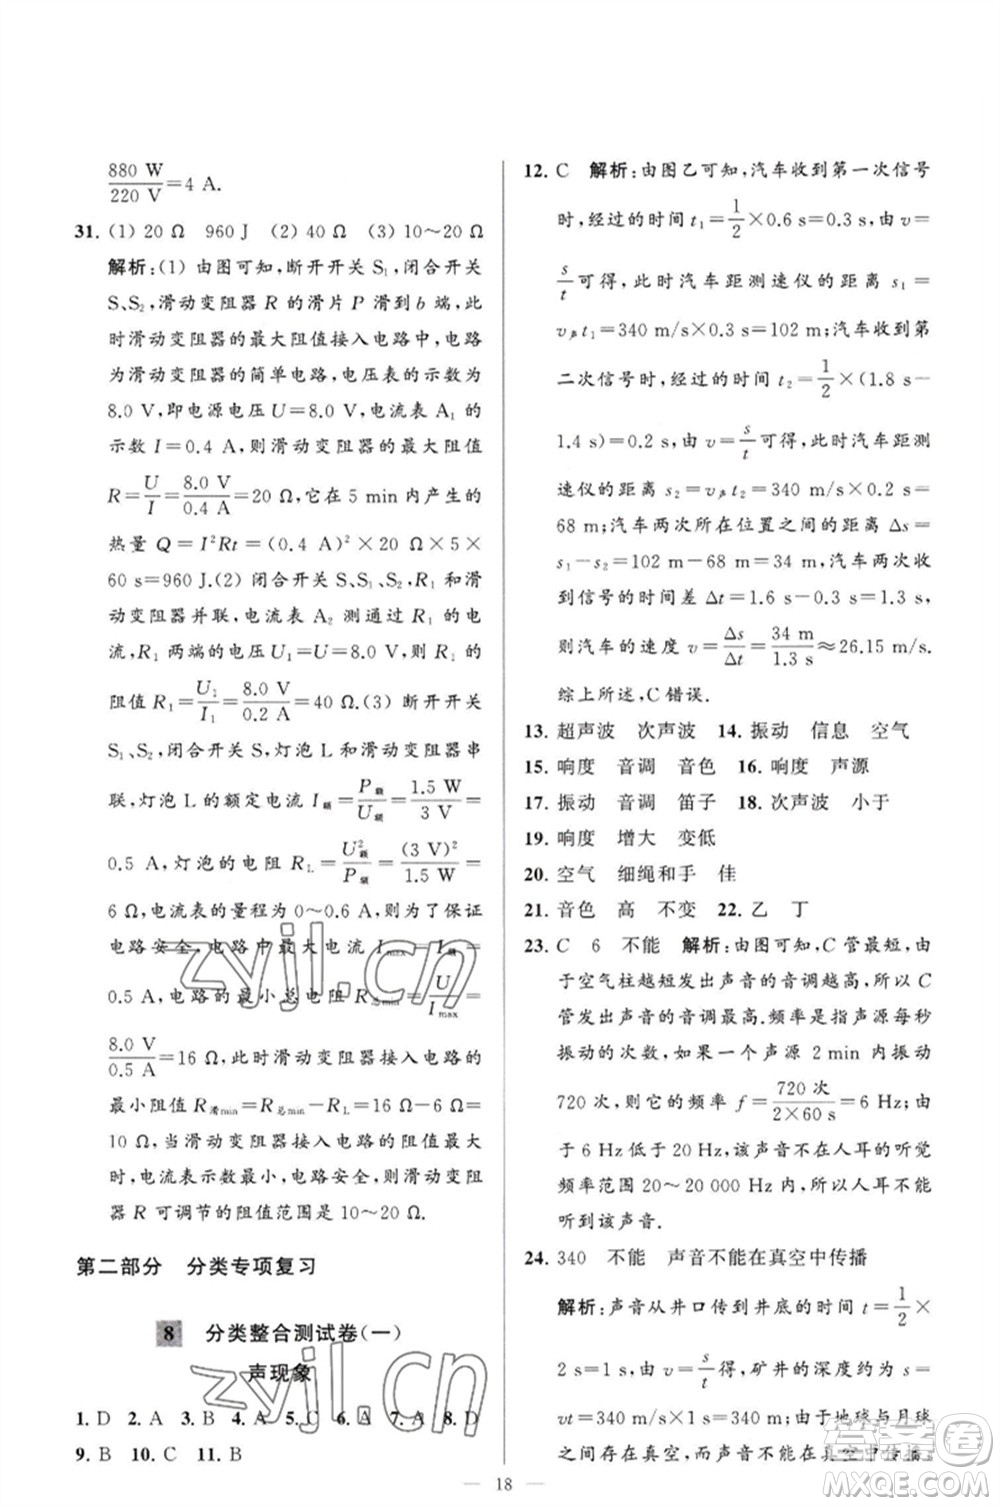 880 W/220 V=4 A.
31. (1) 20 Ω 960 J (2) 40 Ω (3) 10～20 Ω
解析:(1) 由图可知,断开开关 S₁,闭合开关
S、S₂,滑动变阻器 R 的滑片 P 滑到 b 端,此
时滑动变阻器的最大阻值接入电路中,电路
为滑动变阻器的简单电路,电压表的示数为
8.0 V,即电源电压 U=8.0 V,电流表 A₁ 的
示数 I=0.4 A,则滑动变阻器的最大阻值
R=U/I=8.0 V/0.4 A=20 Ω,它在 5 min 内产生的
热量 Q=I²Rt=(0.4 A)²×20 Ω×5×
60 s=960 J.(2) 闭合开关 S、S₁、S₂,R₁ 和滑
动变阻器并联,电流表 A₂ 测通过 R₁ 的电
流,R₁ 两端的电压 U₁=U=8.0 V,R₁ 的
阻值 R₁=U₁/I₁=8.0 V/0.2 A=40 Ω.(3) 断开开关
S₁、S₂,闭合开关 S,灯泡 L 和滑动变阻器串
联,灯泡 L 的额定电流 I额=P额/U额=1.5 W/3 V=
0.5 A,灯泡的电阻 R_L=U²额/P额=(3 V)²/1.5 W=
6 Ω,电流表的量程为 0～0.6 A,为了保证
电路安全,电路中最大电流 I_max=I额=
0.5 A,电路的最小总电阻 R总min=U/I_max=
8.0 V/0.5 A=16 Ω,此时滑动变阻器接入电路的
最小阻值 R滑min=R总min-R_L=16 Ω-6 Ω=
10 Ω,当滑动变阻器接入电路的阻值最大
时,电流表示数最小,电路安全,则滑动变阻
器 R 可调节的阻值范围是 10～20 Ω.
第二部分 分类专项复习
8 分类整合测试卷(一)
声现象
1. D 2. A 3. B 4. A 5. C 6. A 7. A 8. D
9. B 10. C 11. B
12. C 解析:由图乙可知,汽车收到第一次信号
时,经过的时间 t₁=1/2×0.6 s=0.3 s,由 v=
s/t 可得,此时汽车距测速仪的距离 s₁=
v声t₁=340 m/s×0.3 s=102 m;汽车收到第
二次信号时,经过的时间 t₂=1/2×(1.8 s-
1.4 s)=0.2 s,由 v=s/t 可得,此时汽车距测
速仪的距离 s₂=v声t₂=340 m/s×0.2 s=
68 m;汽车两次所在位置之间的距离 Δs=
s₁-s₂=102 m-68 m=34 m,汽车两次收
到信号的时间差 Δt=1.6 s-0.3 s=1.3 s,
则汽车的速度 v=Δs/Δt=34 m/1.3 s≈26.15 m/s.
综上所述,C 错误.
13. 超声波 次声波 14. 振动 信息 空气
15. 响度 音调 音色 16. 响度 声源
17. 振动 音调 笛子 18. 次声波 小于
19. 响度 增大 变低
20. 空气 细绳和手 佳
21. 音色 高 不变 22. 乙 丁
23. C 6 不能 解析:由图可知,C 管最短,由
于空气柱越短发出声音的音调越高,所以 C
管发出声音的音调最高.频率是指声源每秒
振动的次数,如果一个声源 2 min 内振动
720 次,那么它的频率 f=720 次/2×60 s=6 Hz,由
于 6 Hz 低于 20 Hz,该声音不在人耳的听觉
频率范围 20～20 000 Hz 内,所以人耳不能
听到该声音.
24. 340 不能 声音不能在真空中传播
解析:声音从井口传到井底的时间 t=1/2×
2 s=1 s,由 v=s/t 得,矿井的深度约为 s=
vt=340 m/s×1 s=340 m;由于地球与月球
之间存在真空,而声音不能在真空中传播,
18
zyjl.cn
zyjl.cn
答案卷
MXQE.COM